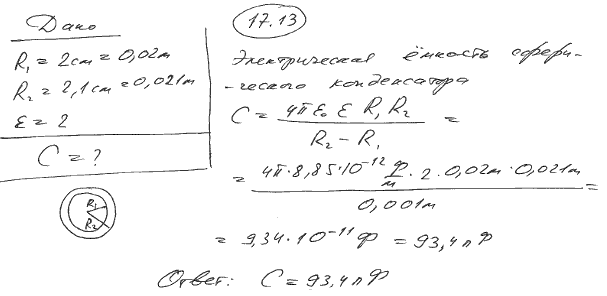 17.13
Дано
R₁ = 2см = 0,02м
R₂ = 2,1см = 0,021м
ε = 2
C = ?
R₁
R₂
Электрическая ёмкость сфери-
-ческого конденсатора
C = 4πε₀ ε R₁ R₂ / R₂ - R₁ =
= 4π·8,85·10⁻¹² Ф/м · 2 · 0,02м · 0,021м / 0,001м =
= 9,34·10⁻¹¹ Ф = 93,4 пФ
Ответ: C = 93,4 пФ